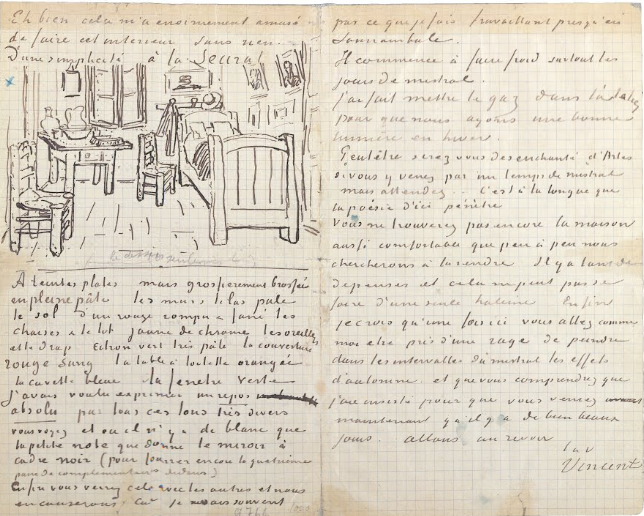 Eh bien cela m'a enormement amusé
de faire cet interieur sans rien
D'une simplicité à la Seurat
à teintes plates mais grossierement brossées
en pleine pâte les murs lilas pale
le sol d'un rouge rompu & fané les
chaises & le lit jaune de chrome les oreillers
et le drap citron vert très pâle la couverture
rouge sang la table à toilette orangée
la cuvette bleue la fenetre verte
J'avais voulu exprimer un repos
absolu par tous ces tons très divers
vous voyez et où il n'y a de blanc que
la petite note que donne le miroir à
cadre noir (pour fourrer encore la quatrième
paire de complementaires dedans)
Enfin vous verrez cela avec les autres et nous
en causerons car je ne sais souvent
par ce que je fais travaillant presqu'en
somnambule.
Il commence à faire froid surtout les
jours de mistral.
J'ai fait mettre le gaz dans l'atelier
pour que nous ayons une bonne
lumière en hiver.
Peutêtre serez vous desenchanté d'Arles
si vous y venez par un temps de mistral
mais attendez.. C'est à la longue que
la poésie d'ici pénètre
Vous ne trouverez pas encore la maison
aussi comfortable que peu à peu nous
chercherons à la rendre Il y a tant de
depenses et cela ne peut pas se
faire d'une seule haleine Enfin
je crois qu'une fois ici vous allez comme
moi etre pris d'une rage de peindre
dans les intervalles du mistral les effets
d'automne et que vous comprendrez que
j'ai insisté pour que vous veniez
maintenant qu'il y a de bien beaux
jours. allons au revoir
t. av.
Vincent